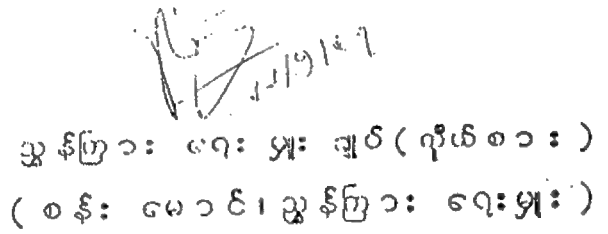 ညွှန်ကြားရေးမှူးချုပ်(ကိုယ်စား)
(စန်းမောင်၊ညွှန်ကြားရေးမှူး)